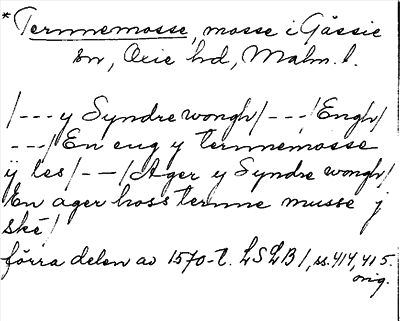 *Ternnemosse, mosse i Gässie
sn, Oxie hd, Malm. l.
/--- y Syndre wongh/---/Engh/
---/En eng y ternnemosse
ÿ les/--/Ager y Syndre wongh/
En ager hoss ternne musse j
ské/
förra delen av 1570-t. LSLB 1, ss. 414, 415.
orig.